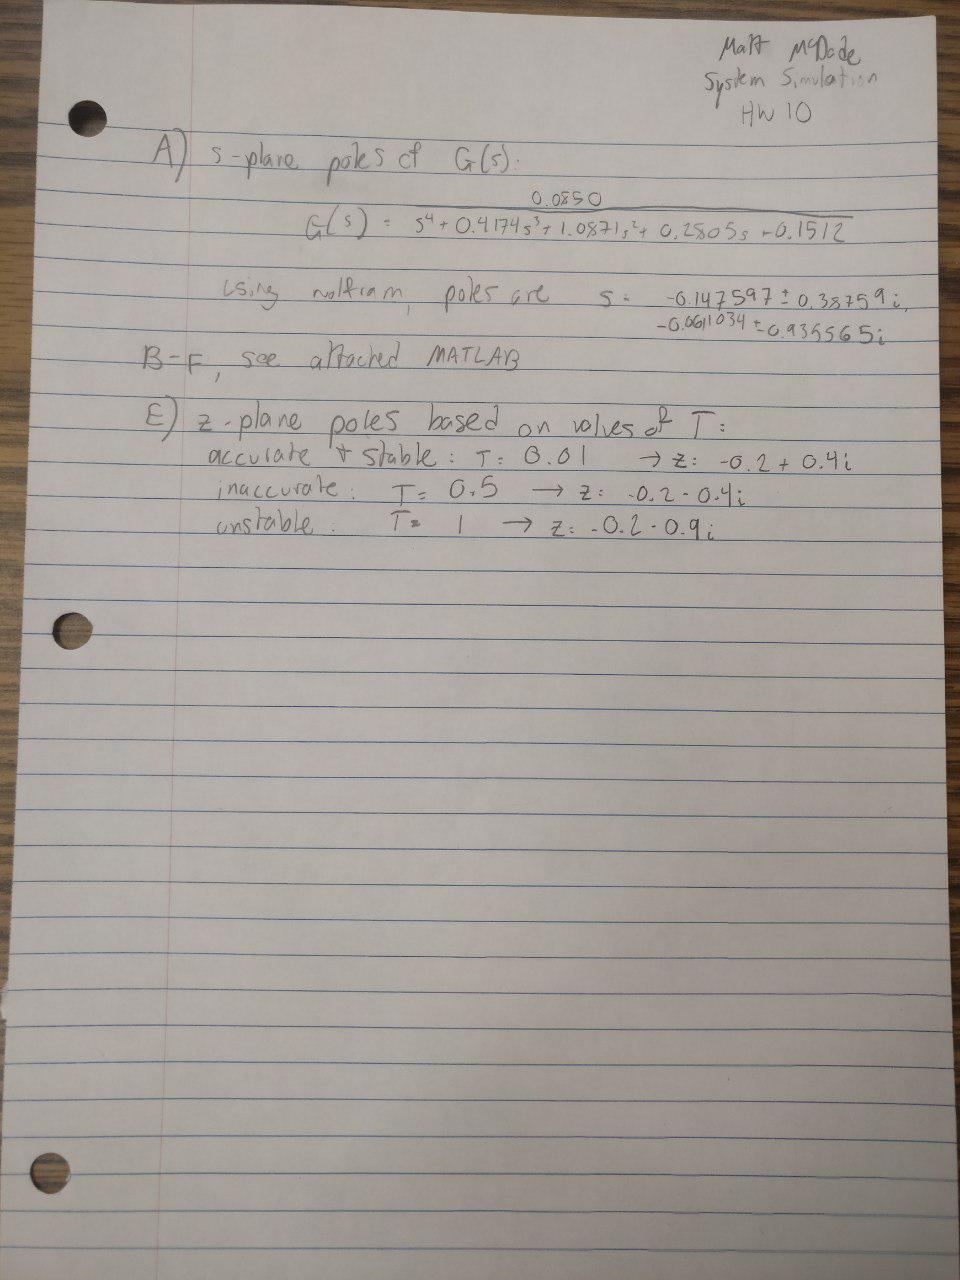 Matt McDade
System Simulation
HW 10
A) s-plane poles of G(s):
0.0850
G(s) = s⁴ + 0.4174s³ + 1.0871s² + 0.2805s + 0.1512
Using wolfram, poles are s = -0.147597 ± 0.38759i,
-0.0611034 ± 0.935565i
B-F, see attached MATLAB
E) z-plane poles based on values of T:
accurate + stable: T = 0.01 → z = -0.2 + 0.4i
inaccurate: T = 0.5 → z = -0.2 - 0.4i
unstable: T = 1 → z = -0.2 - 0.9i